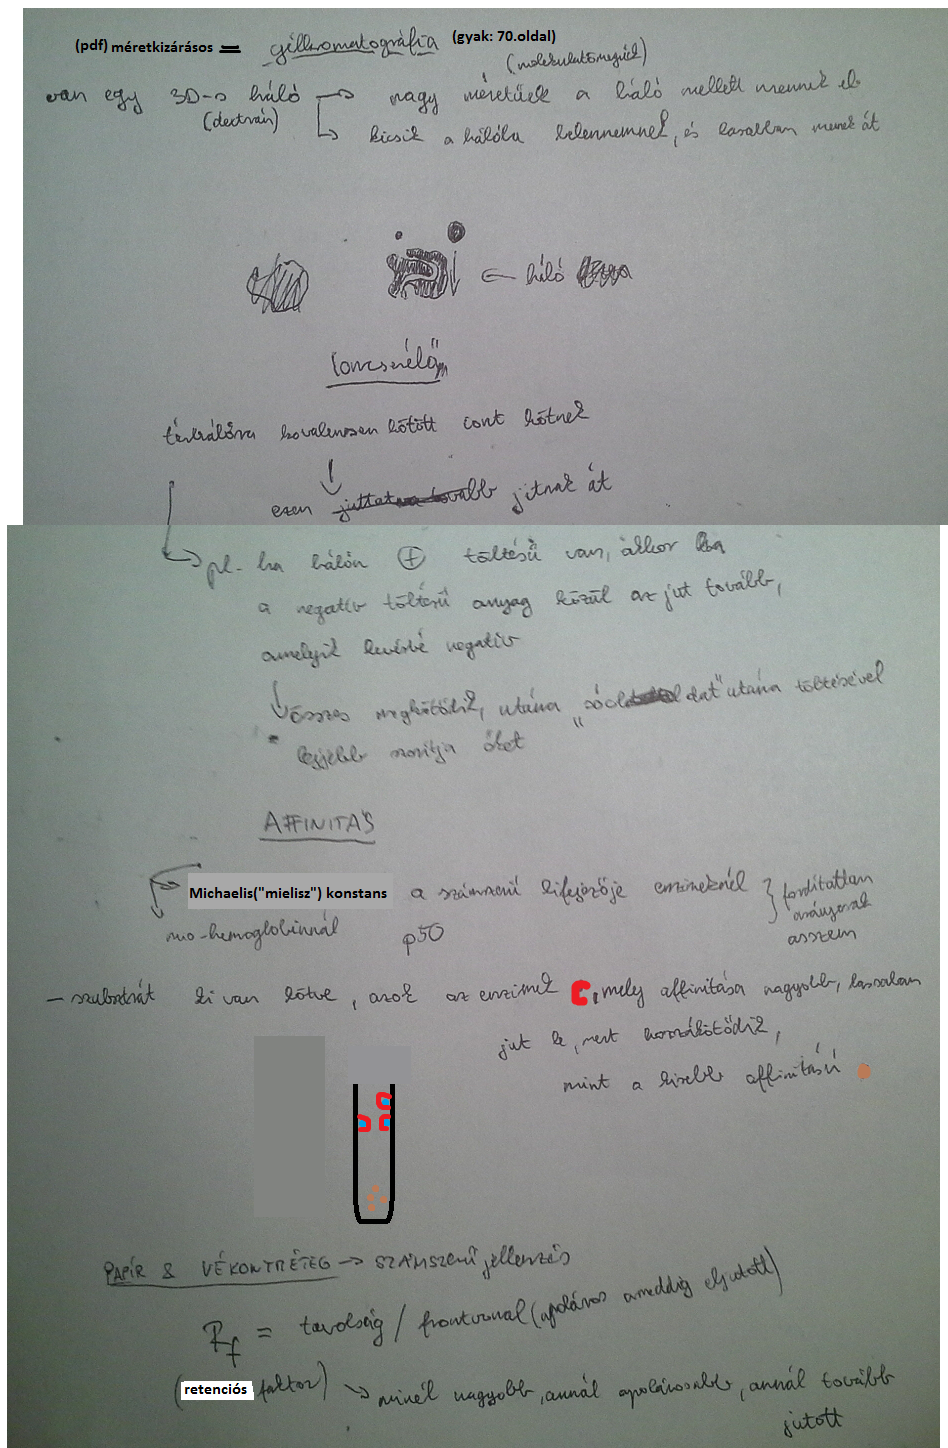 (pdf) méretkizárásos - gélkromatográfia (gyak: 70.oldal)
(molekulatömegnél)
van egy 3D-s háló → nagy méretűek a háló mellett mennek el
(dextrán)
kicsik a hálóba belemennek, és lassabban mennek át
← háló
Ioncserélő
térhálóra kovalensen kötött iont kötnek
ezen jutnak át
pl. ha hálón + töltésű van, akkor
a negatív töltésű anyag közül az jut tovább,
amelyik kevésbé negatív
összes megkötődik, utána "sóoldat" utána töltésével
lejjebb szorítja őket
AFFINITÁS
Michaelis("mielisz") konstans a számszerű kifejezője enzimeknél } fordítottan
arányosak
mio-hemoglobinnál p50
asszem
- szubsztrát ki van kötve, azok az enzimek, mely affinitása nagyobb, lassabban
jut le, mert hozzákötődik,
mint a kisebb affinitású
PAPÍR & VÉKONYRÉTEG → SZÁMSZERŰ jellemzés
Rf = távolság / frontvonal (apoláros ameddig eljutott)
(retenciós faktor) → minél nagyobb, annál apolárosabb, annál tovább
jutott